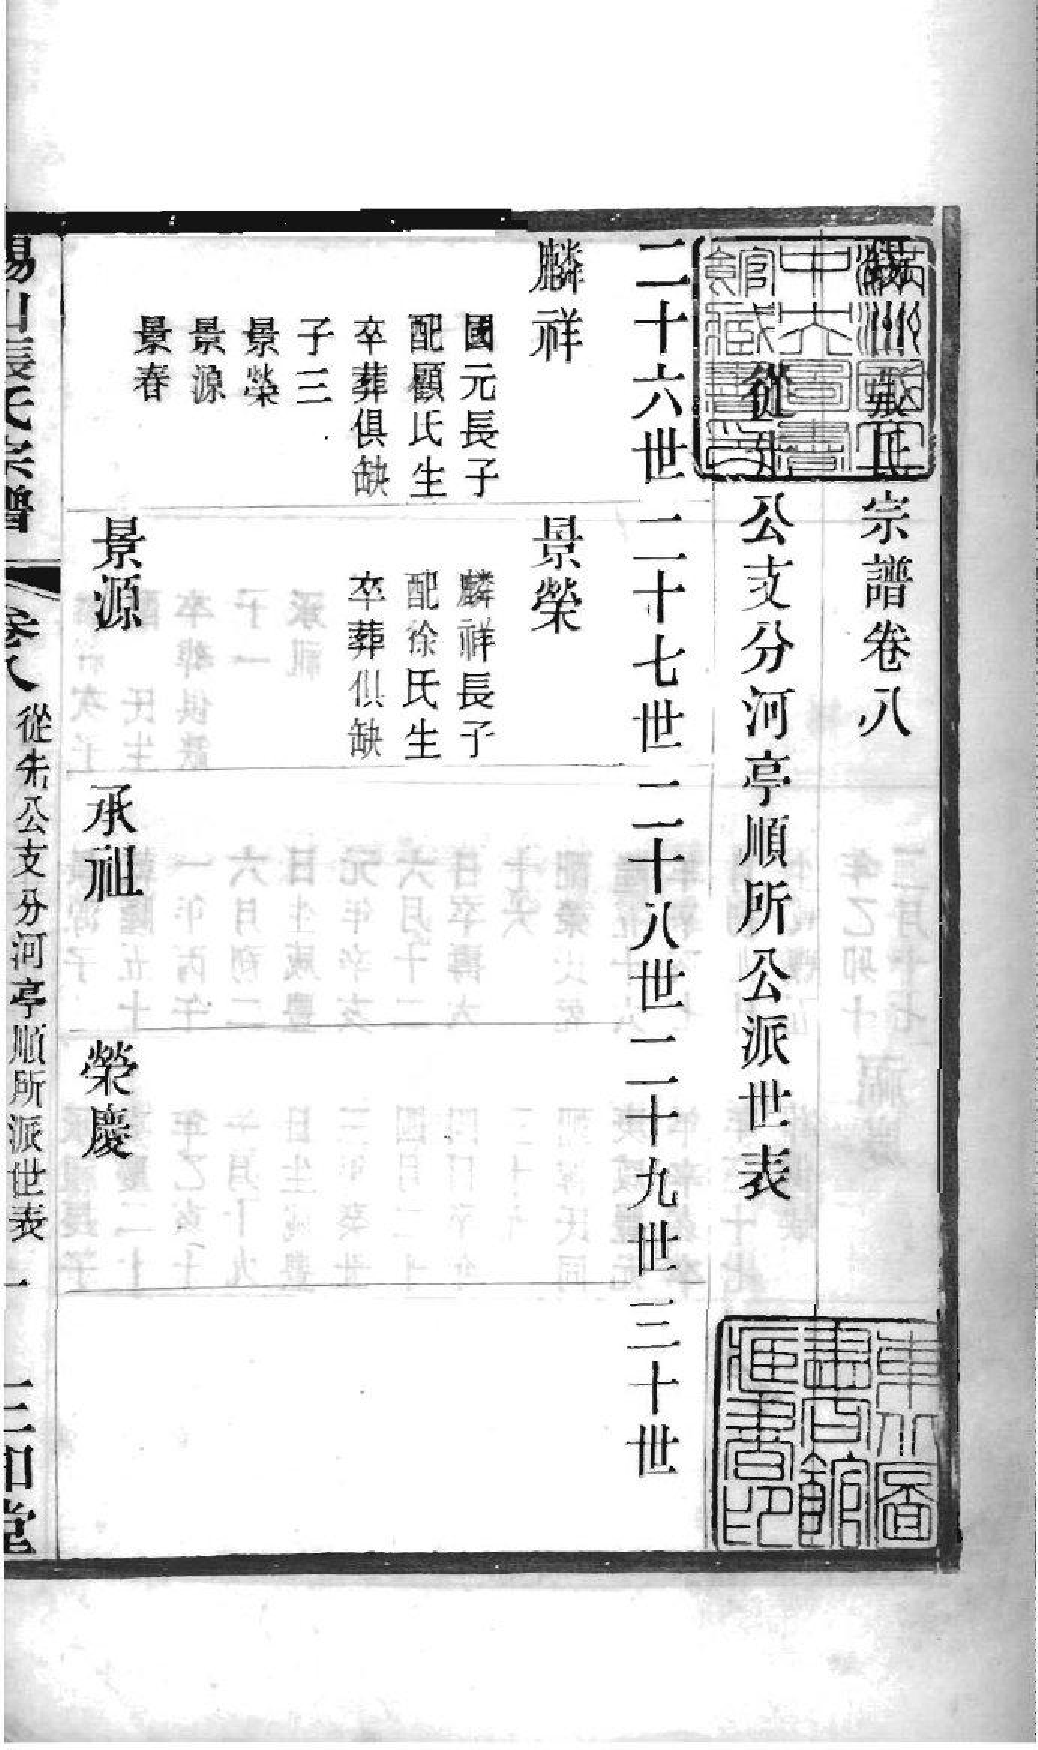 氏宗譜卷八
從先公支分河亭順所公派世表
二十六世
二十七世
二十八世
二十九世
三十世
麟祥
國元長子
配顧氏生
卒葬俱缺
子三
景榮
景源
景春
景榮
麟祥長子
配徐氏生
卒葬俱缺
景源
承祖
榮慶
錫山張氏宗譜
卷八
從先公支分河亭順所派世表
一
三和堂